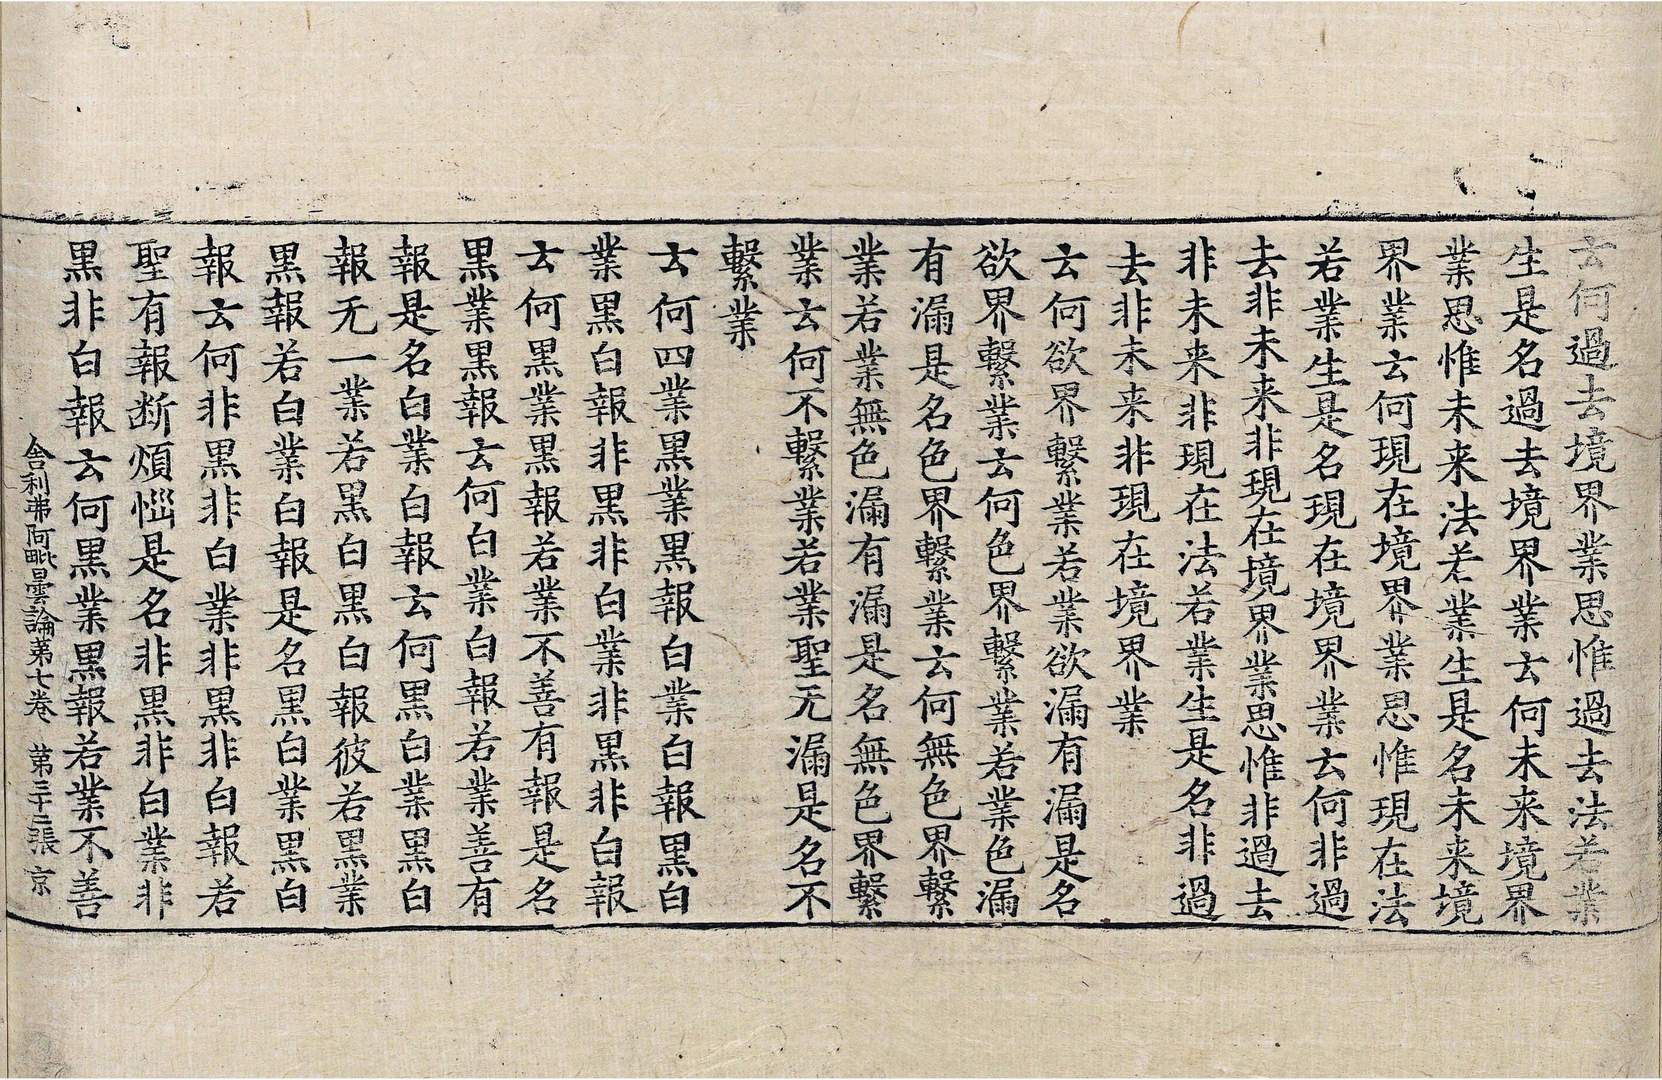 云何過去境界業思惟過去法若業
生是名過去境界業云何未来境界
業思惟未来法若業生是名未来境
界業云何現在境界業思惟現在法
若業生是名現在境界業云何非過
去非未来非現在境界業思惟非過去
非未来非現在法若業生是名非過
去非未来非現在境界業
云何欲界繫業若業欲漏有漏是名
欲界繫業云何色界繫業若業色漏
有漏是名色界繫業云何無色界繫
業若業無色漏有漏是名無色界繫
業云何不繫業若業聖无漏是名不
繫業
云何四業黒業黒報白業白報黒白
業黒白報非黒非白業非黒非白報
云何黒業黒報若業不善有報是名
黒業黒報云何白業白報若業善有
報是名白業白報云何黒白業黒白
報无一業若黒白黒白報彼若黒業
黒報若白業白報是名黒白業黒白
報云何非黒非白業非黒非白報若
聖有報断煩惱是名非黒非白業非
黒非白報云何黒業黒報若業不善
舍利弗阿毗曇論第七卷 第三十二張 京